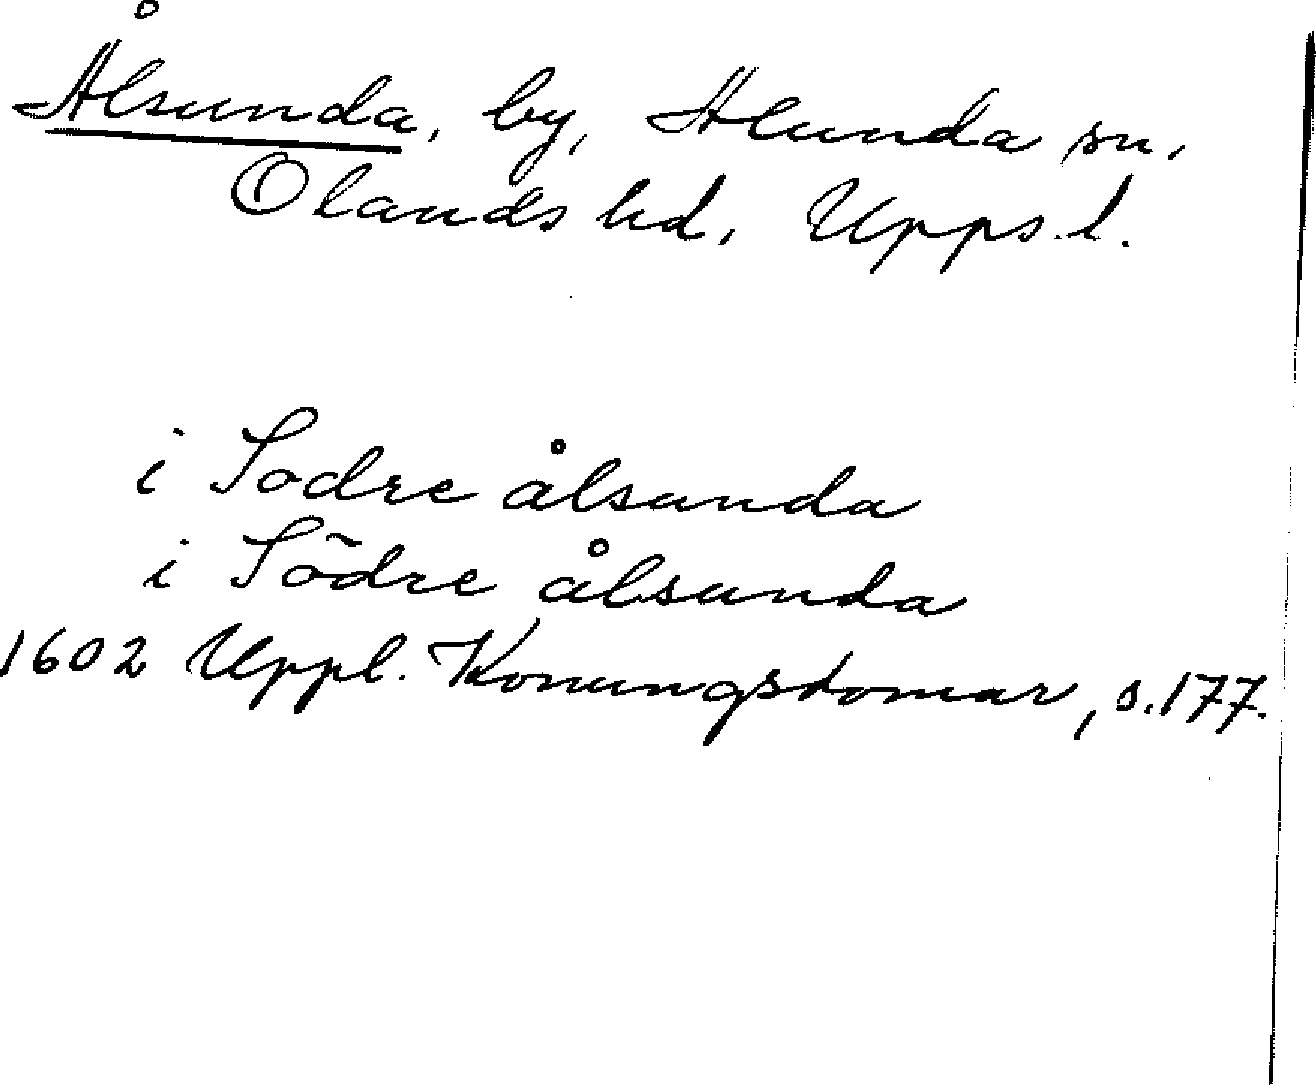 Ålsunda, by, Alunda sn,
Olands hd, Upps.l.
i Sodre ålsunda
i Södre ålsunda
1602 Uppl. Konungsdomar, s.177.